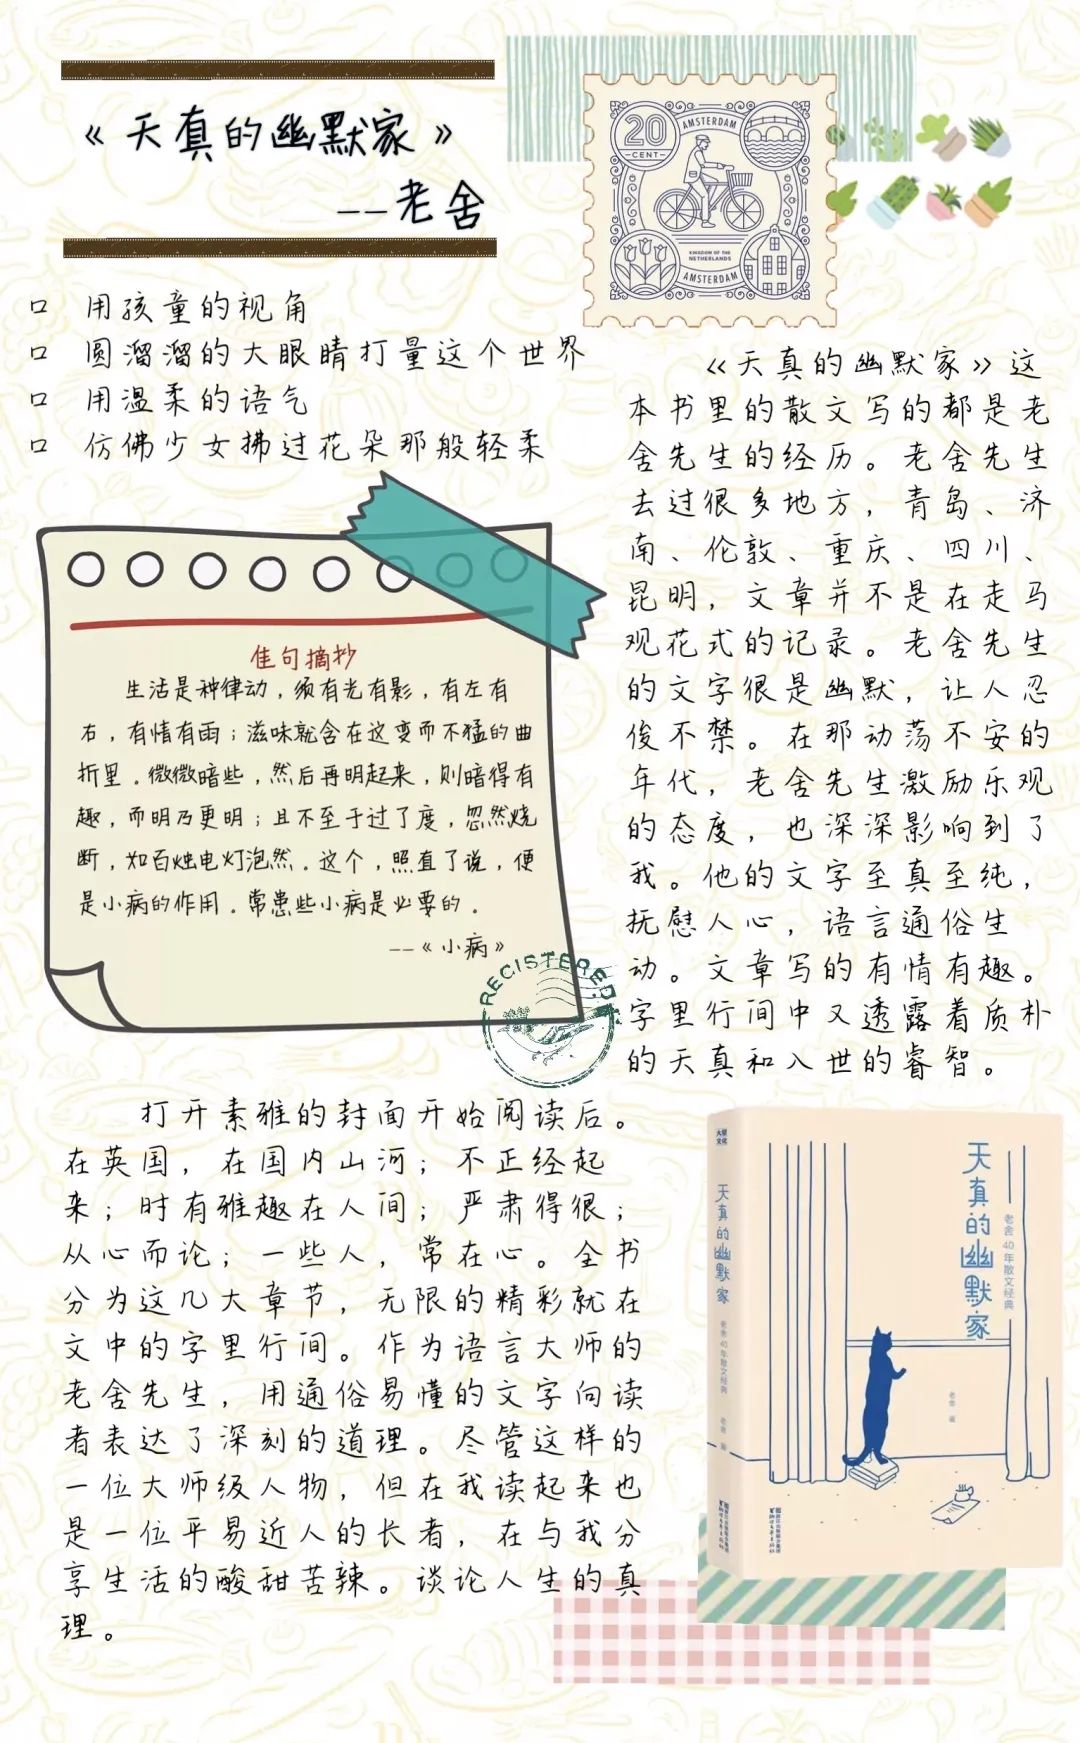 《天真的幽默家》
--老舍
20
CENT
AMSTERDAM
KINGDOM OF THE
NETHERLANDS
AMSTERDAM
用孩童的视角
圆溜溜的大眼睛打量这个世界
用温柔的语气
仿佛少女拂过花朵那般轻柔
佳句摘抄
生活是种律动，须有光有影，有左有
右，有情有雨；滋味就含在这变而不猛的曲
折里。微微暗些，然后再明起来，则暗得有
趣，而明乃更明；且不至于过了度，忽然烧
断，如百烛电灯泡然。这个，照直了说，便
是小病的作用。常患些小病是必要的。
--《小病》
RECISTERED
《天真的幽默家》这
本书里的散文写的都是老
舍先生的经历。老舍先生
去过很多地方，青岛、济
南、伦敦、重庆、四川、
昆明，文章并不是在走马
观花式的记录。老舍先生
的文字很是幽默，让人忍
俊不禁。在那动荡不安的
年代，老舍先生激励乐观
的态度，也深深影响到了
我。他的文字至真至纯，
抚慰人心，语言通俗生
动。文章写的有情有趣。
字里行间中又透露着质朴
的天真和入世的睿智。
打开素雅的封面开始阅读后。
在英国，在国内山河；不正经起
来；时有雅趣在人间；严肃得很；
从心而论；一些人，常在心。全书
分为这几大章节，无限的精彩就在
文中的字里行间。作为语言大师的
老舍先生，用通俗易懂的文字向读
者表达了深刻的道理。尽管这样的
一位大师级人物，但在我读起来也
是一位平易近人的长者，在与我分
享生活的酸甜苦辣。谈论人生的真
理。
大星
文化
天真的幽默家
老舍40年散文经典
老舍 著
天真的幽默家
老舍40年散文经典
老舍 著